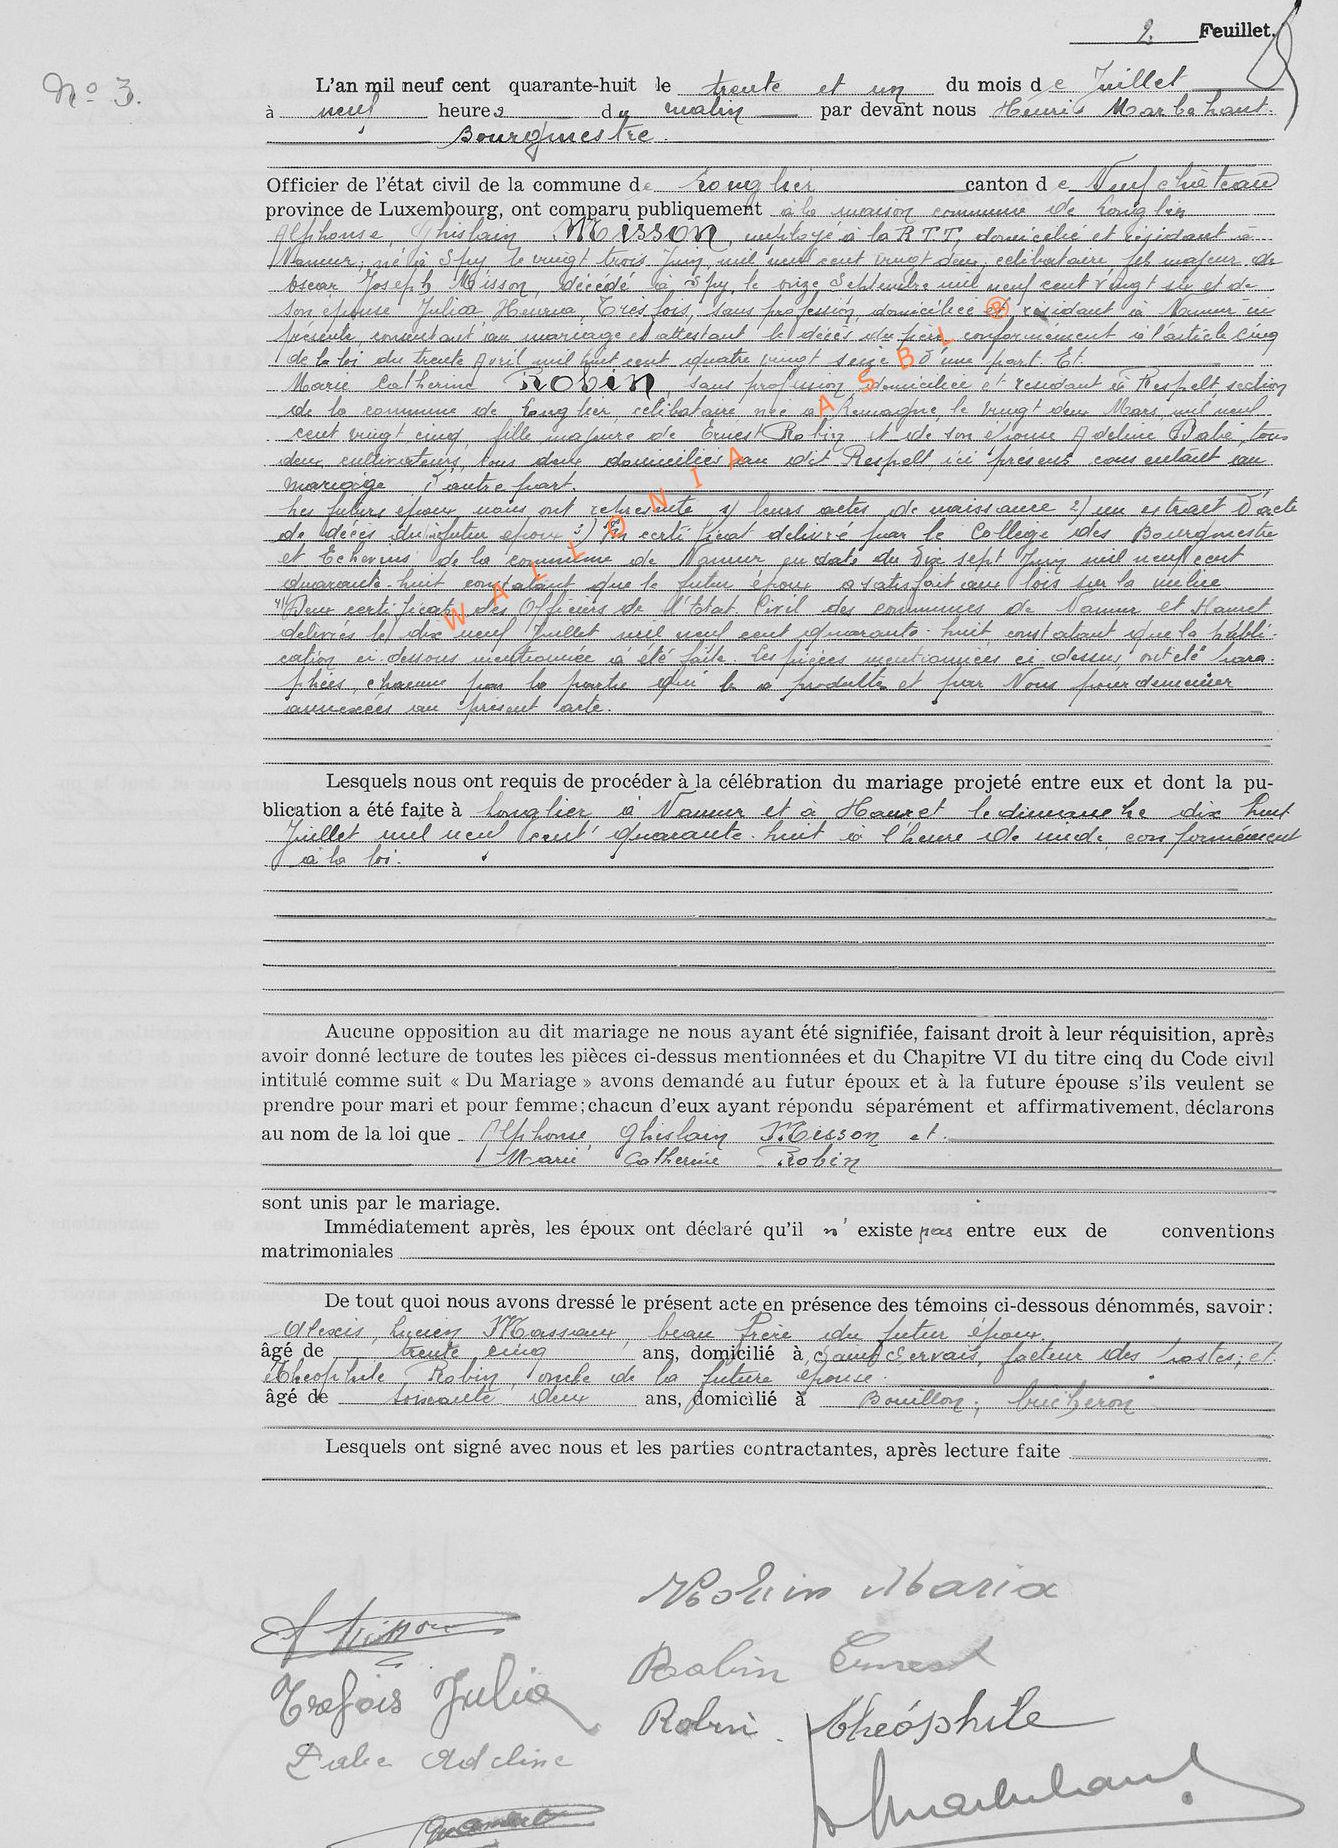 2. Feuillet.
N° 3.
L'an mil neuf cent quarante-huit le trente et un du mois de Juillet
à neuf heures du matin par devant nous Henri Marbehant
Bourgmestre.
Officier de l'état civil de la commune de Longlier canton de Neufchâteau
province de Luxembourg, ont comparu publiquement à la maison commune de Longlier
Alphonse, Ghislain Misson, employé à la R.T.T, domicilié et résidant à
Namur; né à Spy le vingt trois Juin mil neuf cent vingt deux, célibataire fils majeur de
Oscar Joseph Misson, décédé à Spy, le onze Septembre mil neuf cent vingt six et de
son épouse Julia Tresfois, sans profession, domiciliée et résidant à Namur ici
présente, consentant au mariage et attestant le décès du père conformément à l'article cinq
de la loi du trente Avril mil huit cent quatre vingt seize D'une part. Et.
Marie Catherine Robin, sans profession, domiciliée et résidant à Respelt, section
de la commune de Longlier, célibataire née à Remagne, le vingt deux Mars mil neuf
cent vingt cinq, fille majeure de Ernest Robin et de son épouse Adeline Dabe, tous
deux cultivateurs, tous deux domiciliés au dit Respelt, ici présents consentant au
mariage D'autre part.
Les futurs époux nous ont représenté 1) leurs actes de naissance 2) un extrait d'acte
de décès du futur époux 3) Un certificat délivré par le Collège des Bourgmestre
et Echevins de la commune de Namur en date du Dix sept Juin mil neuf cent
quarante-huit constatant que le futur époux a satisfait aux lois sur la milice
4) Deux certificats des Officiers de l'Etat Civil des communes de Namur et Hamet
délivrés le dix neuf Juillet mil neuf cent quarante-huit constatant que la publi-
cation ci-dessous mentionnée a été faite. Les pièces mentionnées ci-dessus, ont été para-
phées, chacune par la partie qui l'a produite et par Nous pour demeurer
annexées au présent acte.
WALLONIA ASBL ®
Lesquels nous ont requis de procéder à la célébration du mariage projeté entre eux et dont la pu-
blication a été faite à Longlier à Namur et à Hamet le dimanche dix huit
Juillet mil neuf cent quarante-huit à l'heure de midi, conformément
à la loi.
Aucune opposition au dit mariage ne nous ayant été signifiée, faisant droit à leur réquisition, après
avoir donné lecture de toutes les pièces ci-dessus mentionnées et du Chapitre VI du titre cinq du Code civil
intitulé comme suit « Du Mariage » avons demandé au futur époux et à la future épouse s'ils veulent se
prendre pour mari et pour femme; chacun d'eux ayant répondu séparément et affirmativement, déclarons
au nom de la loi que Alphonse, Ghislain Misson et.
Marie Catherine Robin
sont unis par le mariage.
Immédiatement après, les époux ont déclaré qu'il n'existe pas entre eux de conventions
matrimoniales
De tout quoi nous avons dressé le présent acte en présence des témoins ci-dessous dénommés, savoir:
Alexis, Lucien Massaux, beau frère du futur époux,
âgé de trente cinq ans, domicilié à Saint Servais, facteur des Postes; et
Théophile Robin, oncle de la future épouse.
âgé de soixante deux ans, domicilié à Bouillon; bucheron
Lesquels ont signé avec nous et les parties contractantes, après lecture faite
Robin Maria
A Misson
Robin Ernest
Trefois Julia
Robin Théophile
Dabe Adeline
Marbehant